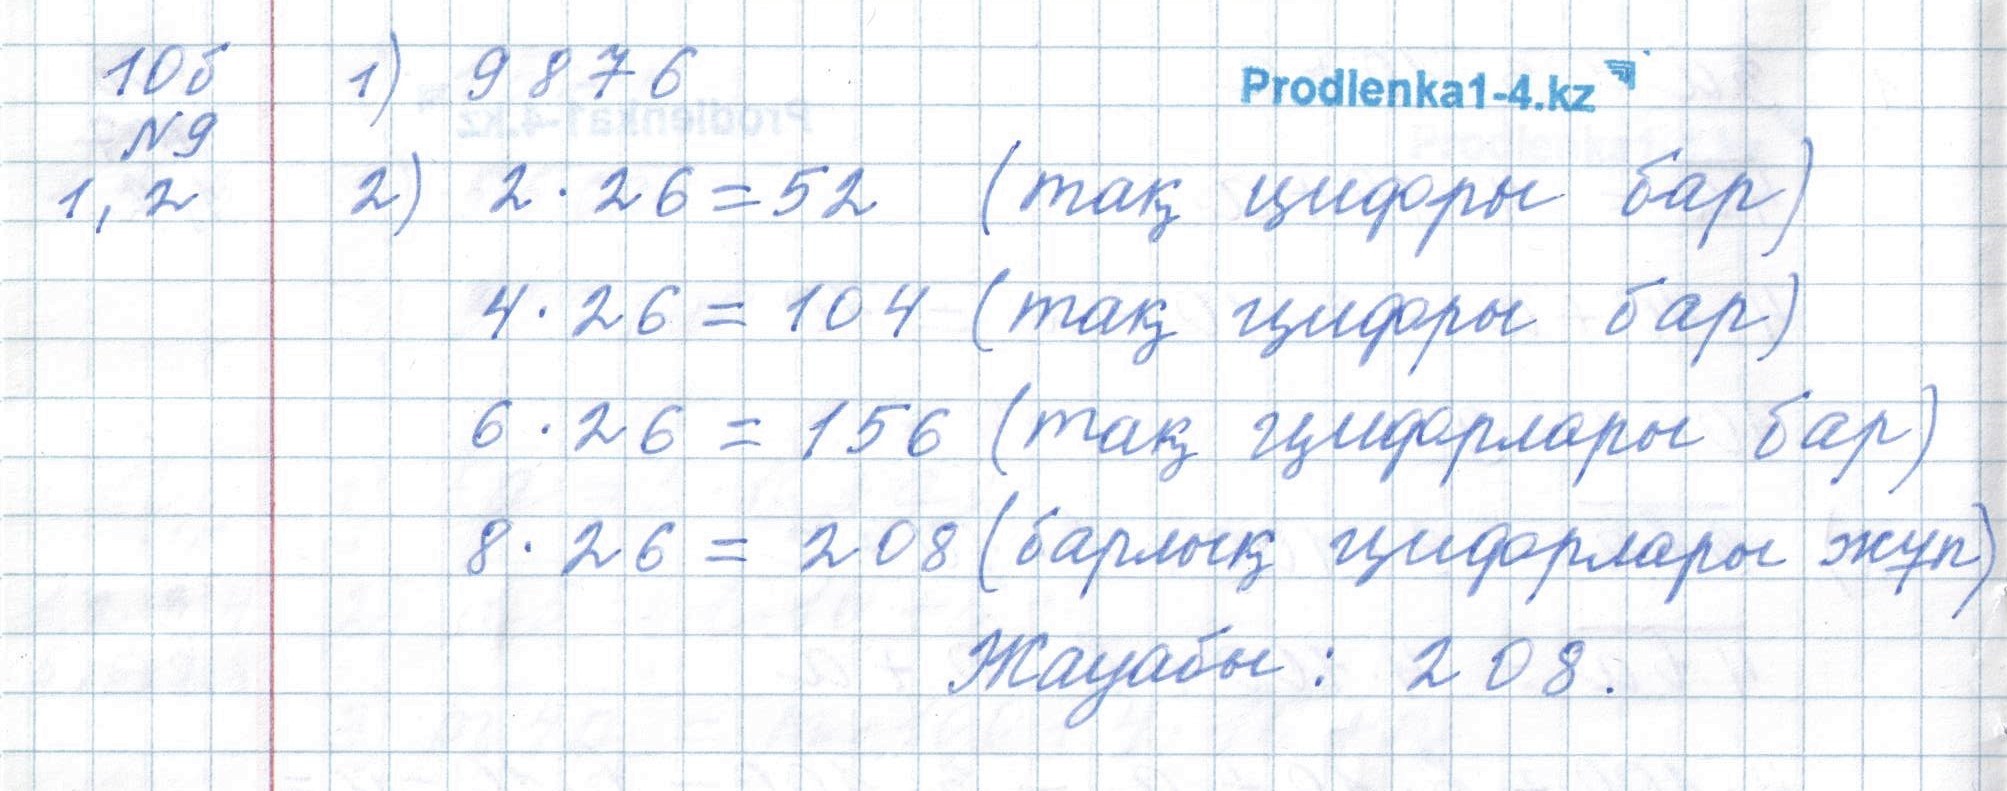 10б 1) 9876 Prodlenka1-4.kz
№9
1, 2 2) 2 · 26 = 52 (тақ цифры бар)
4 · 26 = 104 (тақ цифры бар)
6 · 26 = 156 (тақ цифрлары бар)
8 · 26 = 208 (барлық цифрлары жұп)
Жауабы: 208.